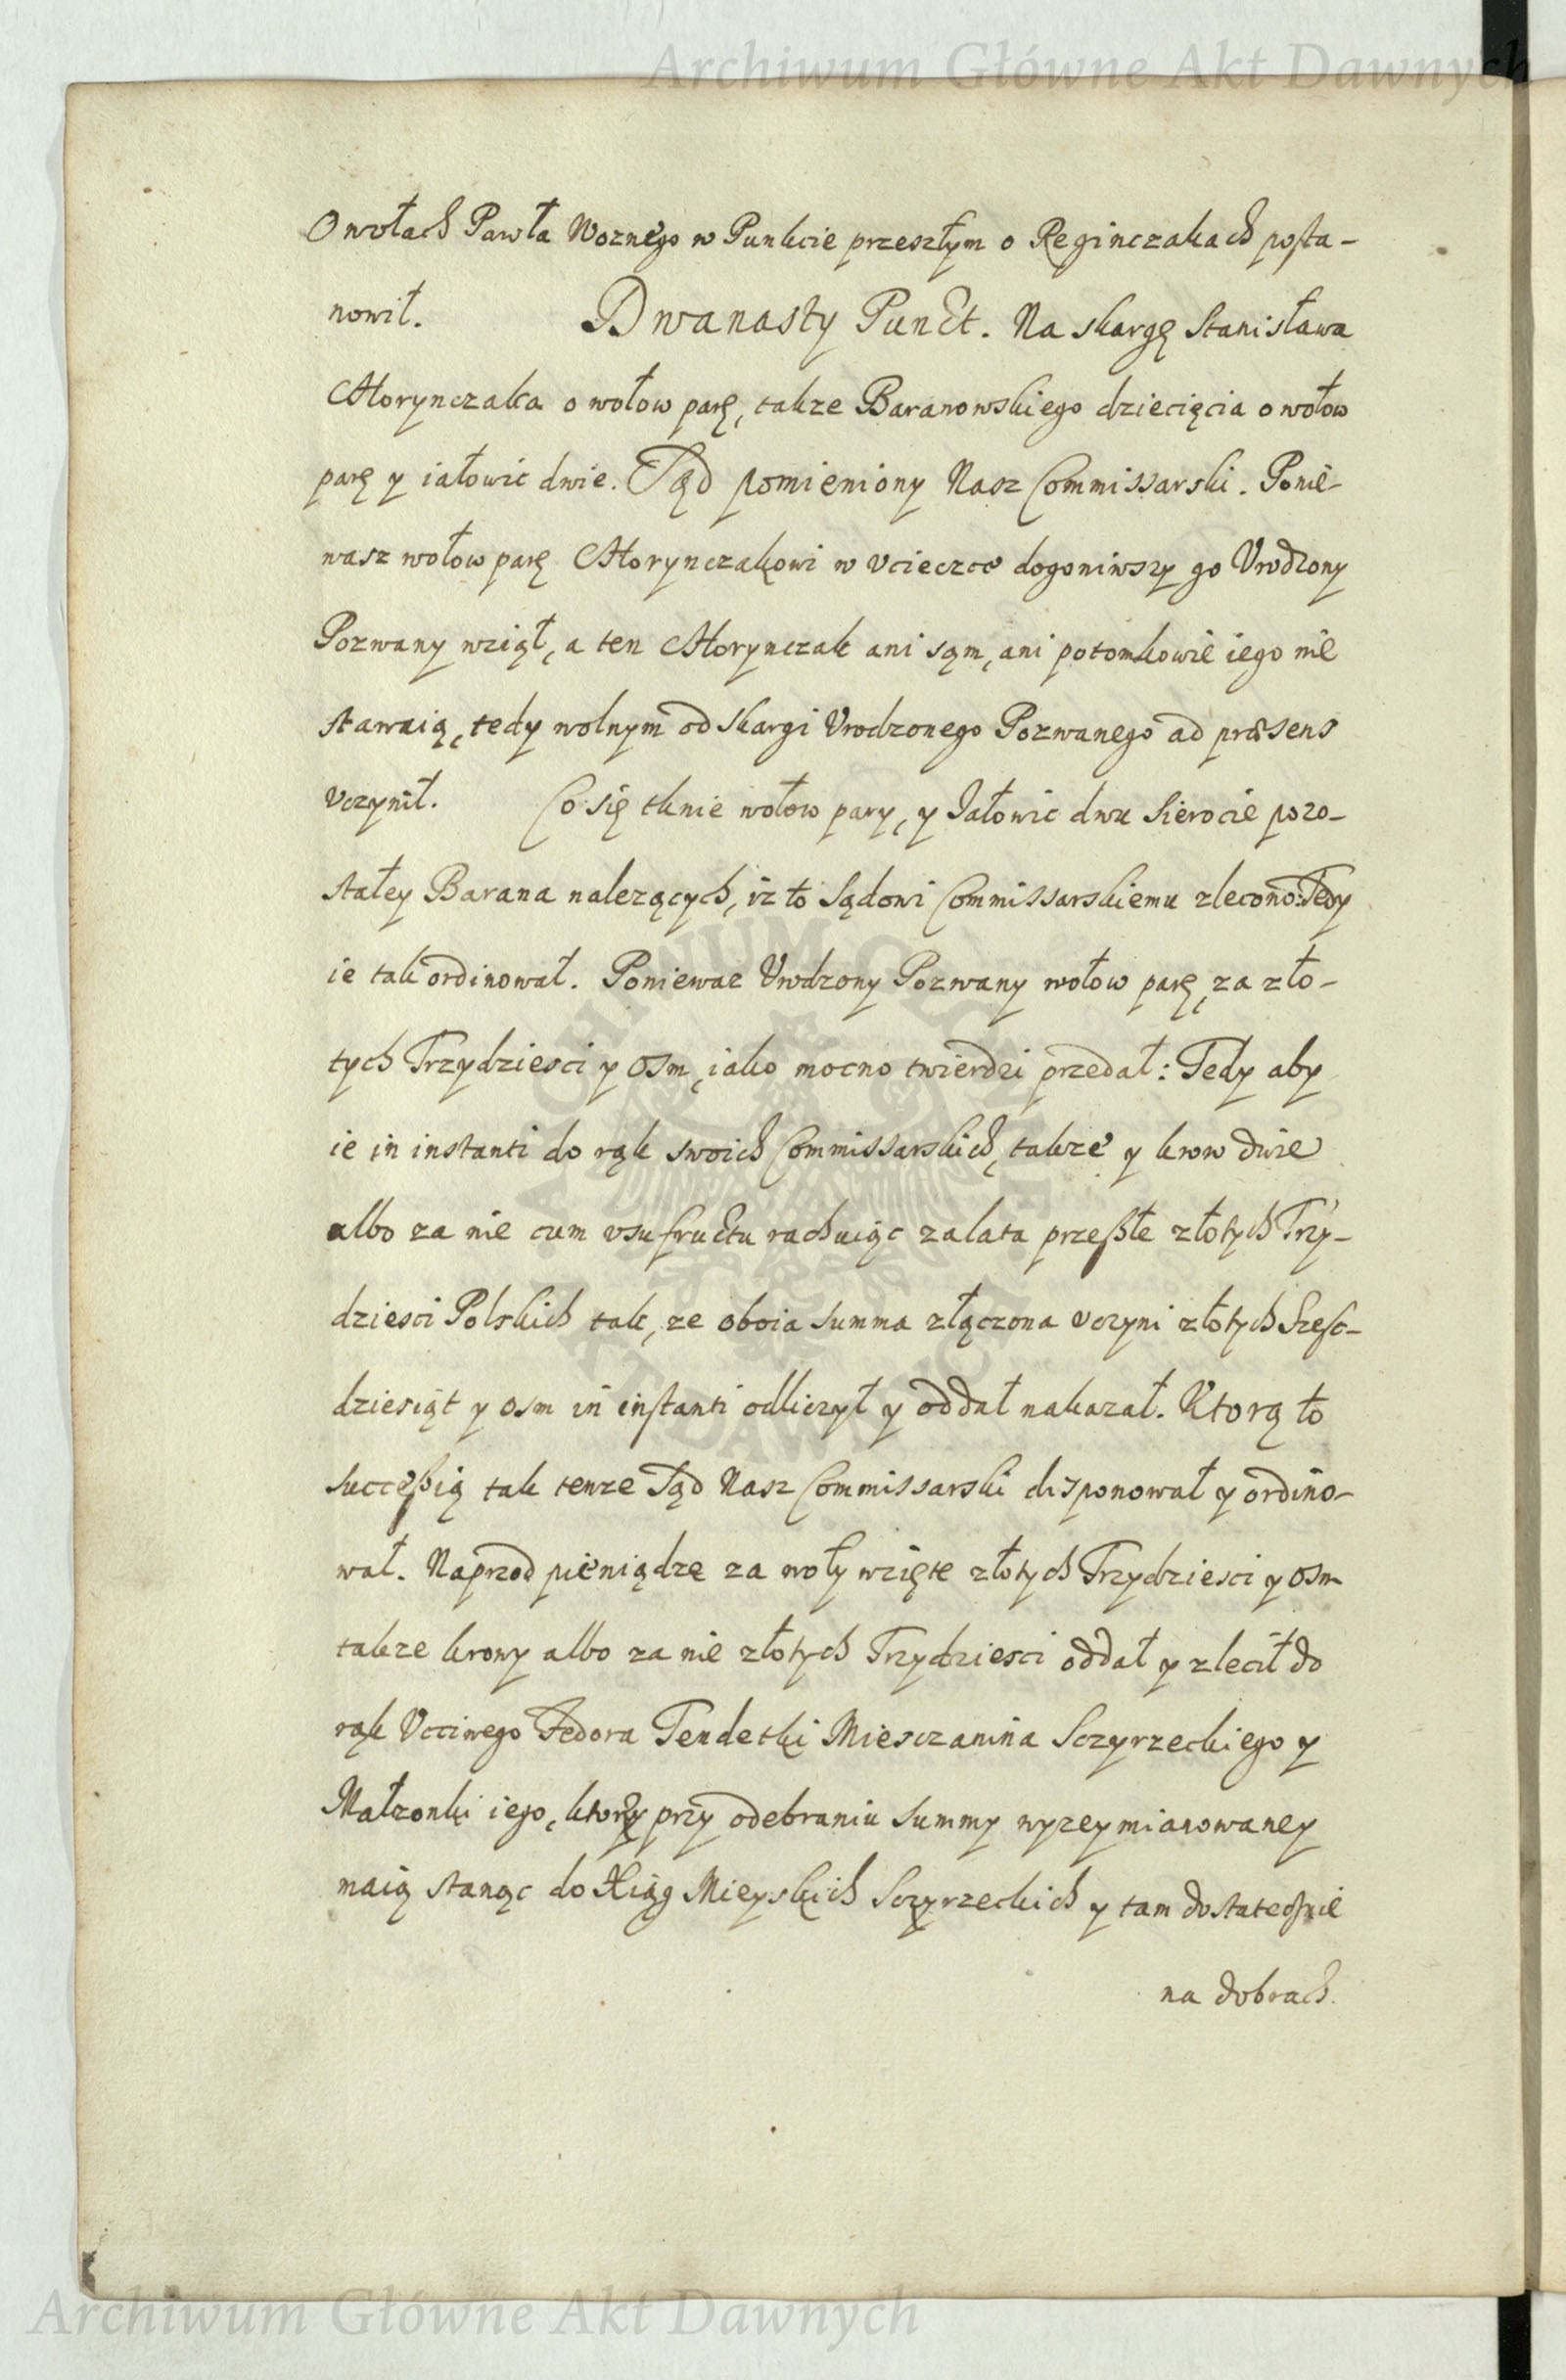 Archiwum Główne Akt Dawnych
O wołach Pawła Woznego w Punkcie przeszłym o Reginczakach posta-
nowił. Dwanasty Punct. Na skargę Stanisława
Horynczaka o wołow parę, takze Baranowskiego dziecięcia o wołow
parę y iałowic dwie. Sąd pomieniony Nasz Commissarski. Ponie-
wasz wołow parę Horynczakowi w vcieczce dogoniwszy go Vrodzony
Pozwany wziął, a ten Horynczak ani sąm, ani potomkowie iego nie
stawaią, tedy wolnym od skargi Vrodzonego Pozwanego ad præsens
vczynił. Co się tknie wołow pary, y Iałowic dwu Sierocie pozo-
stałey Barana nalezących, iz to Sądowi Commissarskiemu zlecono: Tedy
ie tak ordinował. Poniewaz Vrodzony Pozwany wołow parę, za zło-
tych Trzydziesci y osm, iako mocno twierdzi przedał: Tedy aby
ie in instanti do rąk swoich Commissarskich, takze y krow dwie
albo za nie cum vsufructu rachuiąc za lata przeszłe złotych Trzy-
dziesci Polskich tak, ze oboia summa złączona vczyni złotych Szesc-
dziesiąt y osm in instanti odliczył y oddał nakazał. Ktorą to
succeßią tak tenze Sąd Nasz Commissarski disponował y ordino-
wał. Naprzod pieniądze za woły wzięte złotych Trzydziesci y osm
takze krowy albo za nie złotych Trzydziesci oddał y zlecił do
rąk Vcciwego Fedora Tendetki Miesczanina Sczyrzeckiego y
Małzonki iego, ktorzy przy odebraniu summy wyzey mianowaney
maią stanąc do Xiąg Mieyskich Sczyrzeckich y tam dostatecznie
na dobrach
Archiwum Główne Akt Dawnych